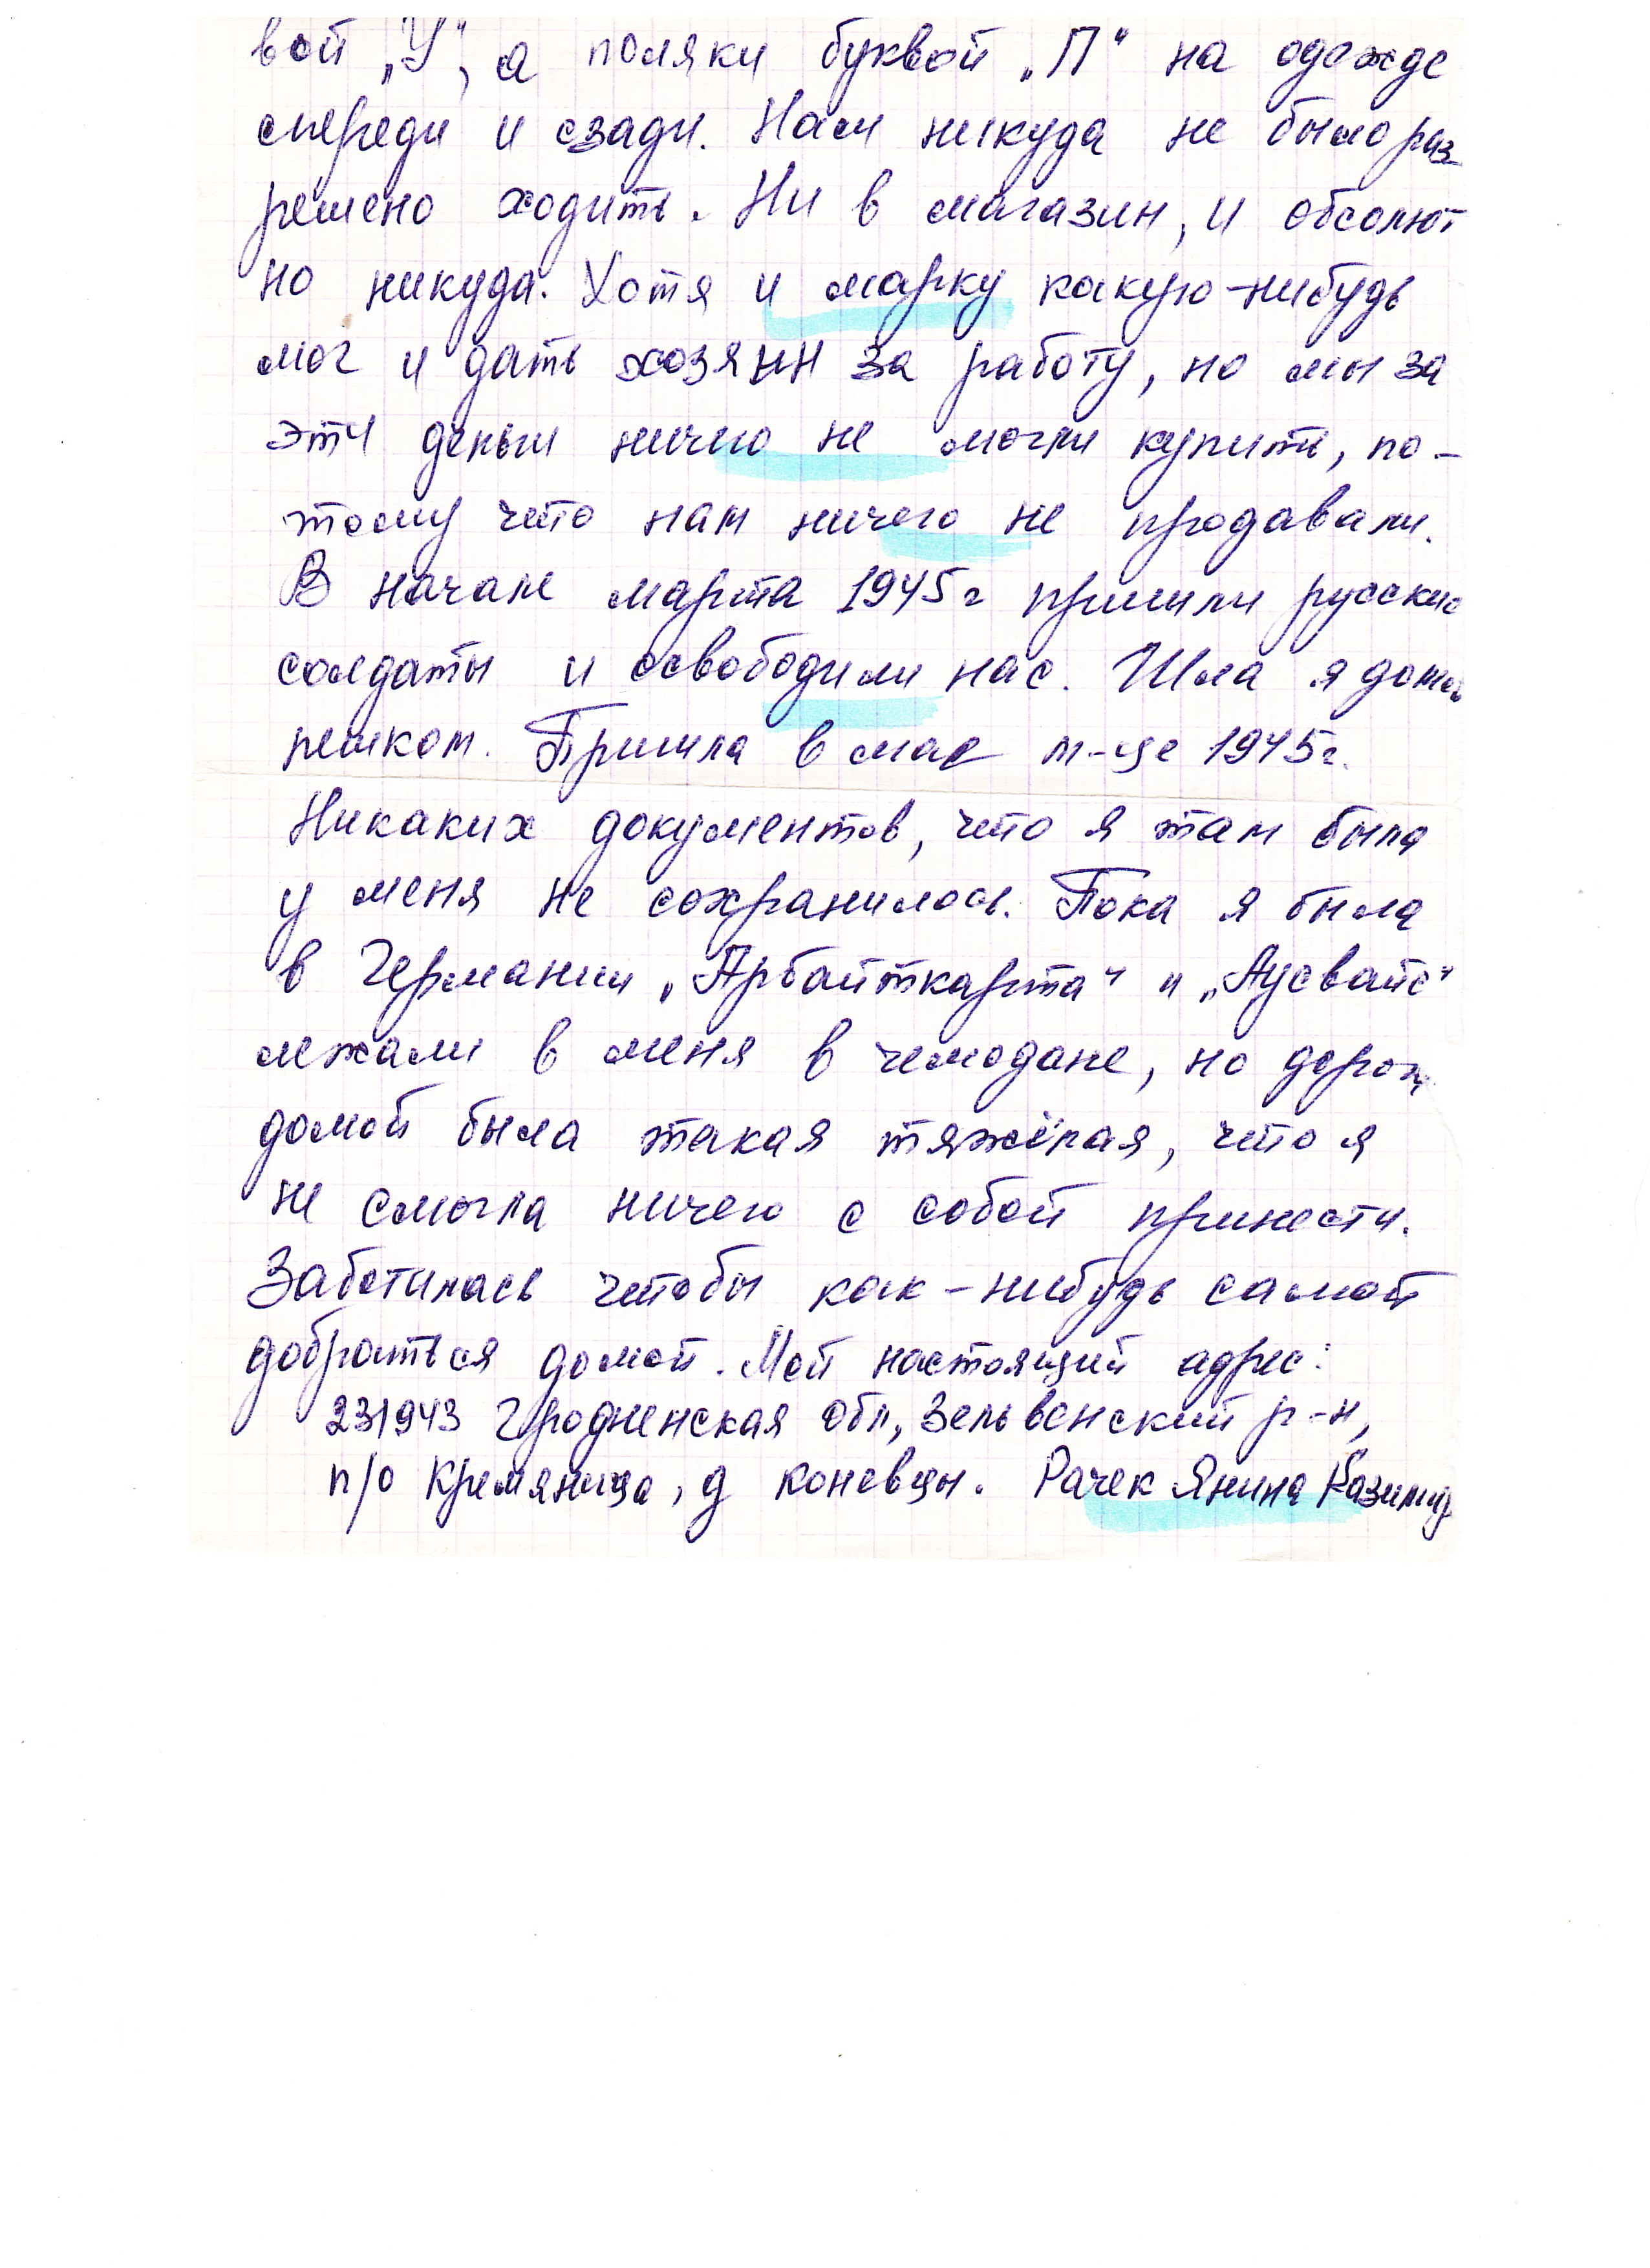 вой „У“, а поляки буквой „П“ на одежде
спереди и сзади. Нам никуда не было раз
решено ходить. Ни в магазин, и обсолют
но никуда. Хотя и марку какую-нибудь
мог и дать хозяин за работу, но мы за
эти деньги ничего не могли купить, по-
тому что нам ничего не продавали.
В начале марта 1945г пришли русские
солдаты и освободили нас. Шла я домой
пешком. Пришла в мае м-це 1945г.
Никаких документов, что я там была
у меня не сохранилось. Пока я была
в Германии „Арбайткарта“ и „Аусвайс“
лежали в меня в чемодане, но дорога
домой была такая тяжёлая, что я
не смогла ничего с собой принести.
Заботилась чтобы как-нибудь самой
добраться домой. Мой настоящий адрес:
231943 Гродненская обл, Зельвенский р-н,
п/о Кремяница, д коневцы. Рачек Янина Казимир